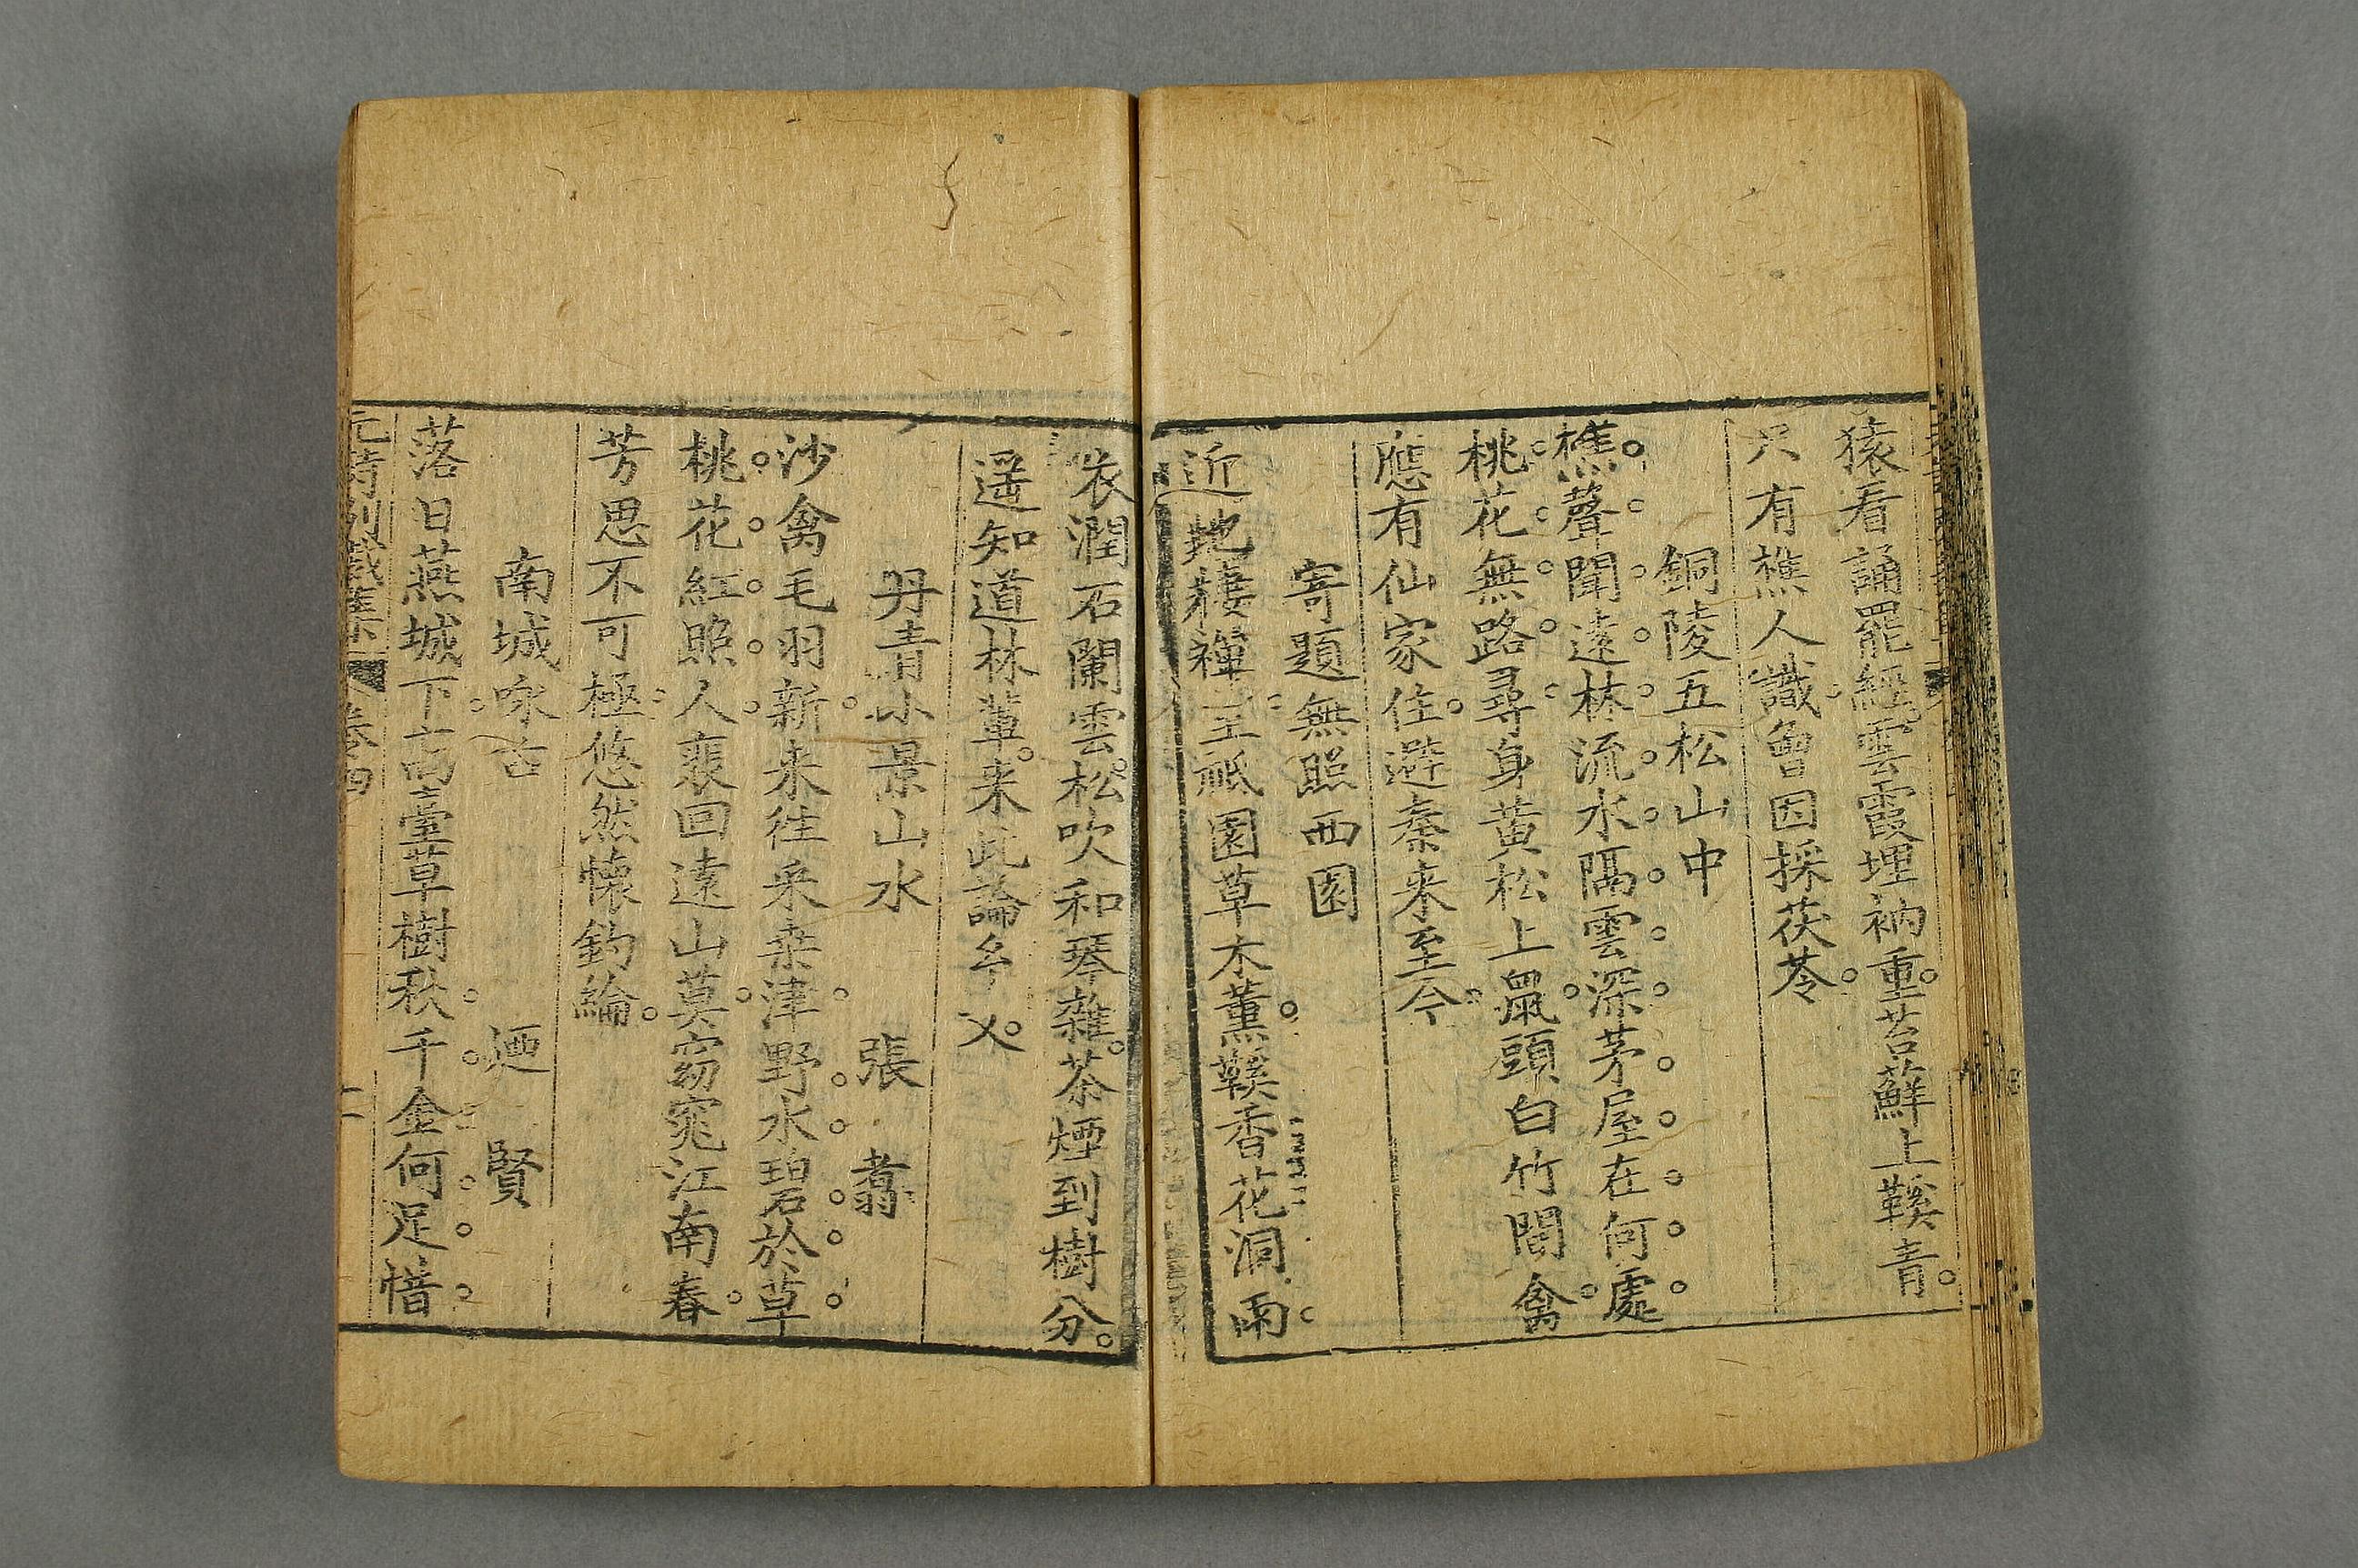 猿看誦罷經雲霞埋衲重苔蘚上鞵青
只有樵人識曾因採茯苓
銅陵五松山中
樵聲聞遠林流水隔雲深茅屋在何處
桃花無路尋身黃松上鼠頭白竹間禽
應有仙家住避秦来至今
寄題無照西園
近地棲禪室祇園草木薰鞵香花洞雨
衣潤石闌雲松吹和琴雜茶煙到樹分
遥知道林輩来此論乆
丹青小景山水 張翥
沙禽毛羽新来往采桒津野水碧於草
桃花紅照人裵回遠山莫窈窕江南春
芳思不可極悠然懷釣綸
南城咏古 廼賢
落日燕城下高臺草樹秋千金何足惜
元詩別裁集 卷四 二